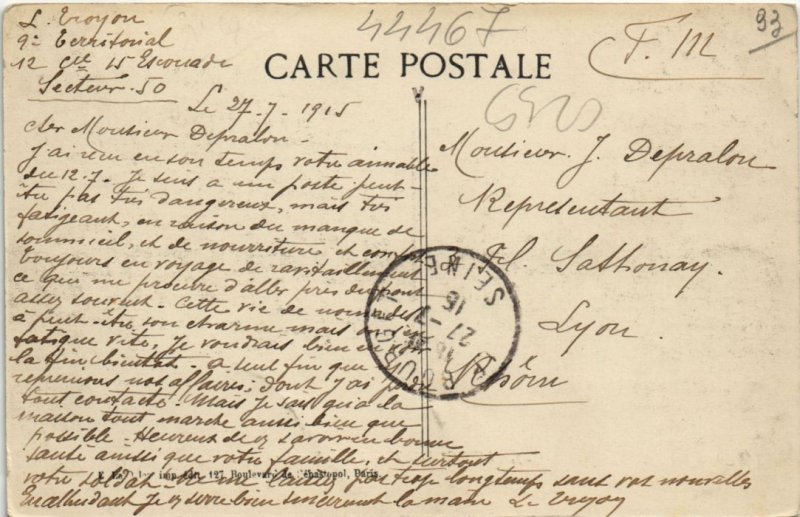 44467
93
L. Troyon
9e Territorial
12 Cie 15 Escouade
Secteur 50
F. M
CARTE POSTALE
Le 27.7.1915
Cher Monsieur Depralon.
J'ai reçu en son temps votre aimable
du 12.7. Je suis a un poste peut-
être pas très dangereux, mais très
fatigeant, en raison du manque de
sommieil, et de nourriture et
toujours en voyage de ravitaillement
ce qui me procure d'aller près du front
assez souvent. Cette vie de nomades
a peut-être son charme mais
fatigue vite, Je voudrais bien en
la fin bientot. a seul fin que
reprenions nos affaires, dont j'ai perdu
tout contacte. Mais je sais qu'a la
maison tout marche aussi bien que
possible. Heureux de vs savoir en bonne
santé ainsi que votre famille, et surtout
votre soldat. ne me laissez pas trop longtemps sans vos nouvelles
En attendant Je vs serre bien sincerement la main L. Troyon
Monsieur J. Depralon
Representant
Pl. Sathonay.
Lyon.
Rhône
BOURGET
SEINE
27 -7
15
imp. édit. 127, Boulevard de Sébastopol, Paris